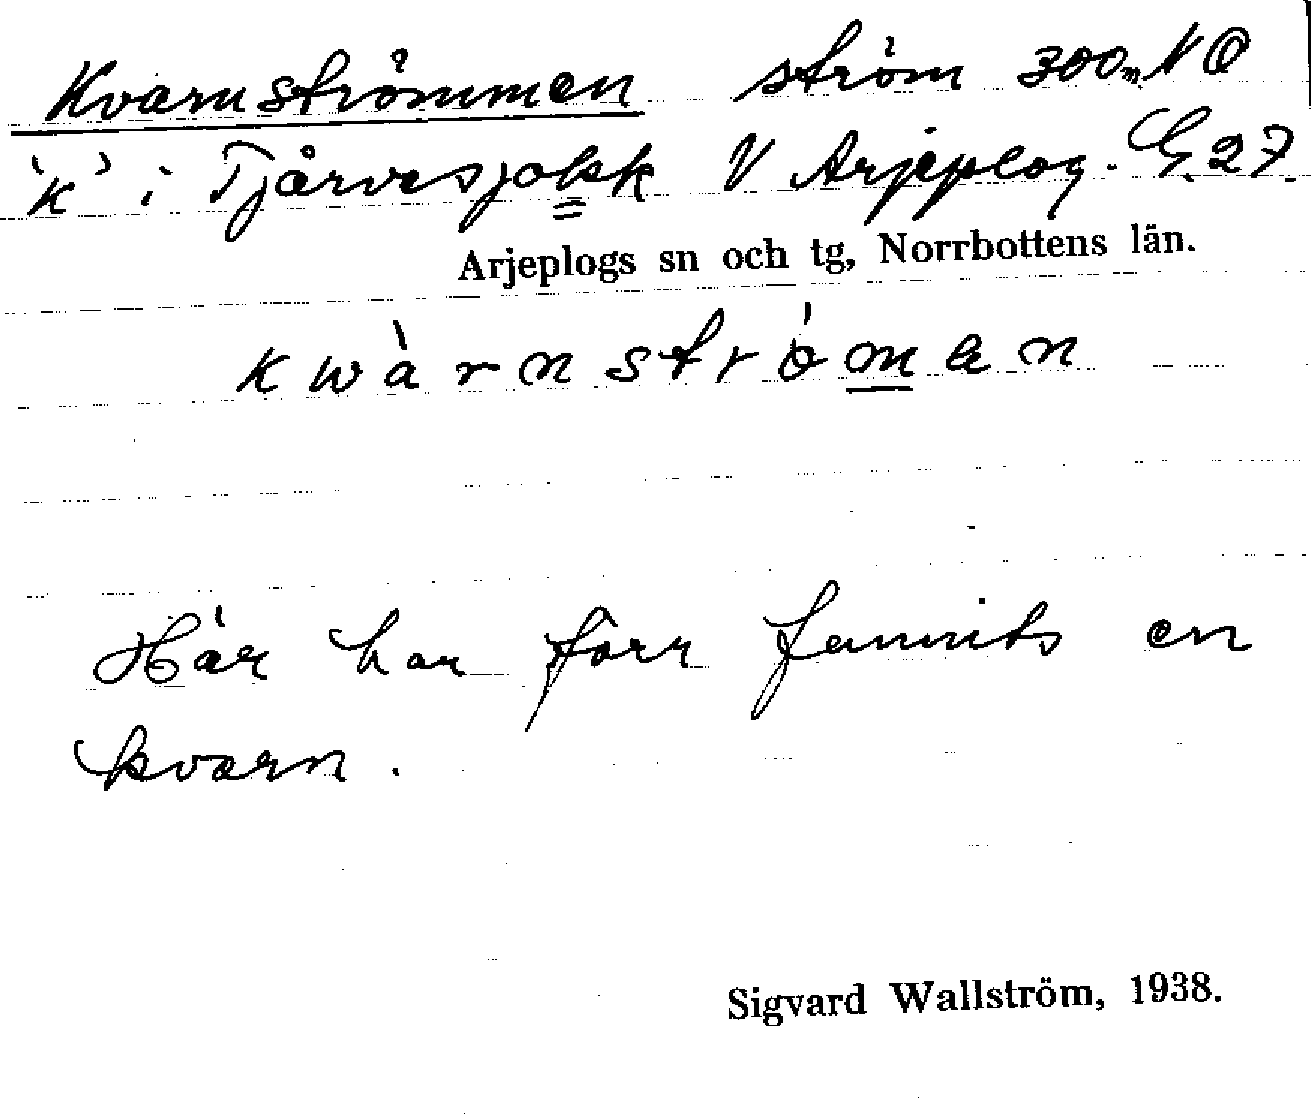 Kvarnströmmen ström 300 m NO
'k' i Tjårvesjokk V Arjeplog. G.27.
Arjeplogs sn och tg, Norrbottens län.
kwàrnströmen
Här har förr funnits en
kvarn.
Sigvard Wallström, 1938.